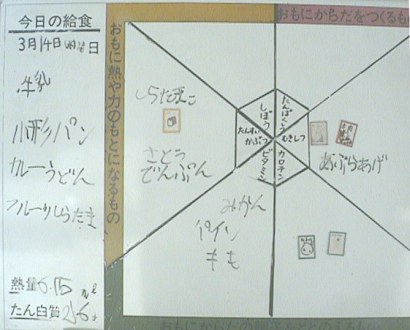 今日の給食
3月14日 曜日
牛乳
小形パン
カレーうどん
フルーツしらたま
熱量
たん白質
おもに熱や力のもとになるもの
おもにからだをつくるも
しぼう
たんぱくしつ
たんすいかぶつ
むきしつ
ビタミン
カロチン
しらたまこ
さとう
でんぷん
みかん
パイン
もも
あぶらあげ